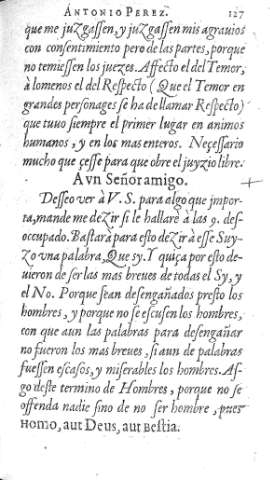 ANTONIO PEREZ. 127
que me juzgassen, y juzgassen mis agrauios
con consentimiento pero de las partes, porque
no temiessen los juezes. Affecto el del Temor,
à lomenos el del Respecto (Que el Temor en
grandes persónages se ha de llamar Respecto)
que tuuo siempre el primer lugar en animos
humanos, y en los mas enteros. Neçessario
mucho que çesse para que obre el juyzio libre.
A vn Señor amigo.
Desseo ver à V. S. para algo que impor-
ta, mande me dezir si le hallarè a las 9. des-
occupado. Bastarà para esto dezir à esse Suy-
zo vna palabra, Que sy. Y quiça por esto de-
uieron de ser las mas breues de todas el Sy, y
el No. Porque sean desengañados presto los
hombres, y porque no se escusen los hombres,
con que aun las palabras para desengañar
no fueron los mas breues, si aun de palabras
fuessen escasos, y miserables los hombres. As-
go deste termino de Hombres, porque no se
offenda nadie sino de no ser hombre, pues
Homo, aut Deus, aut Bestia.